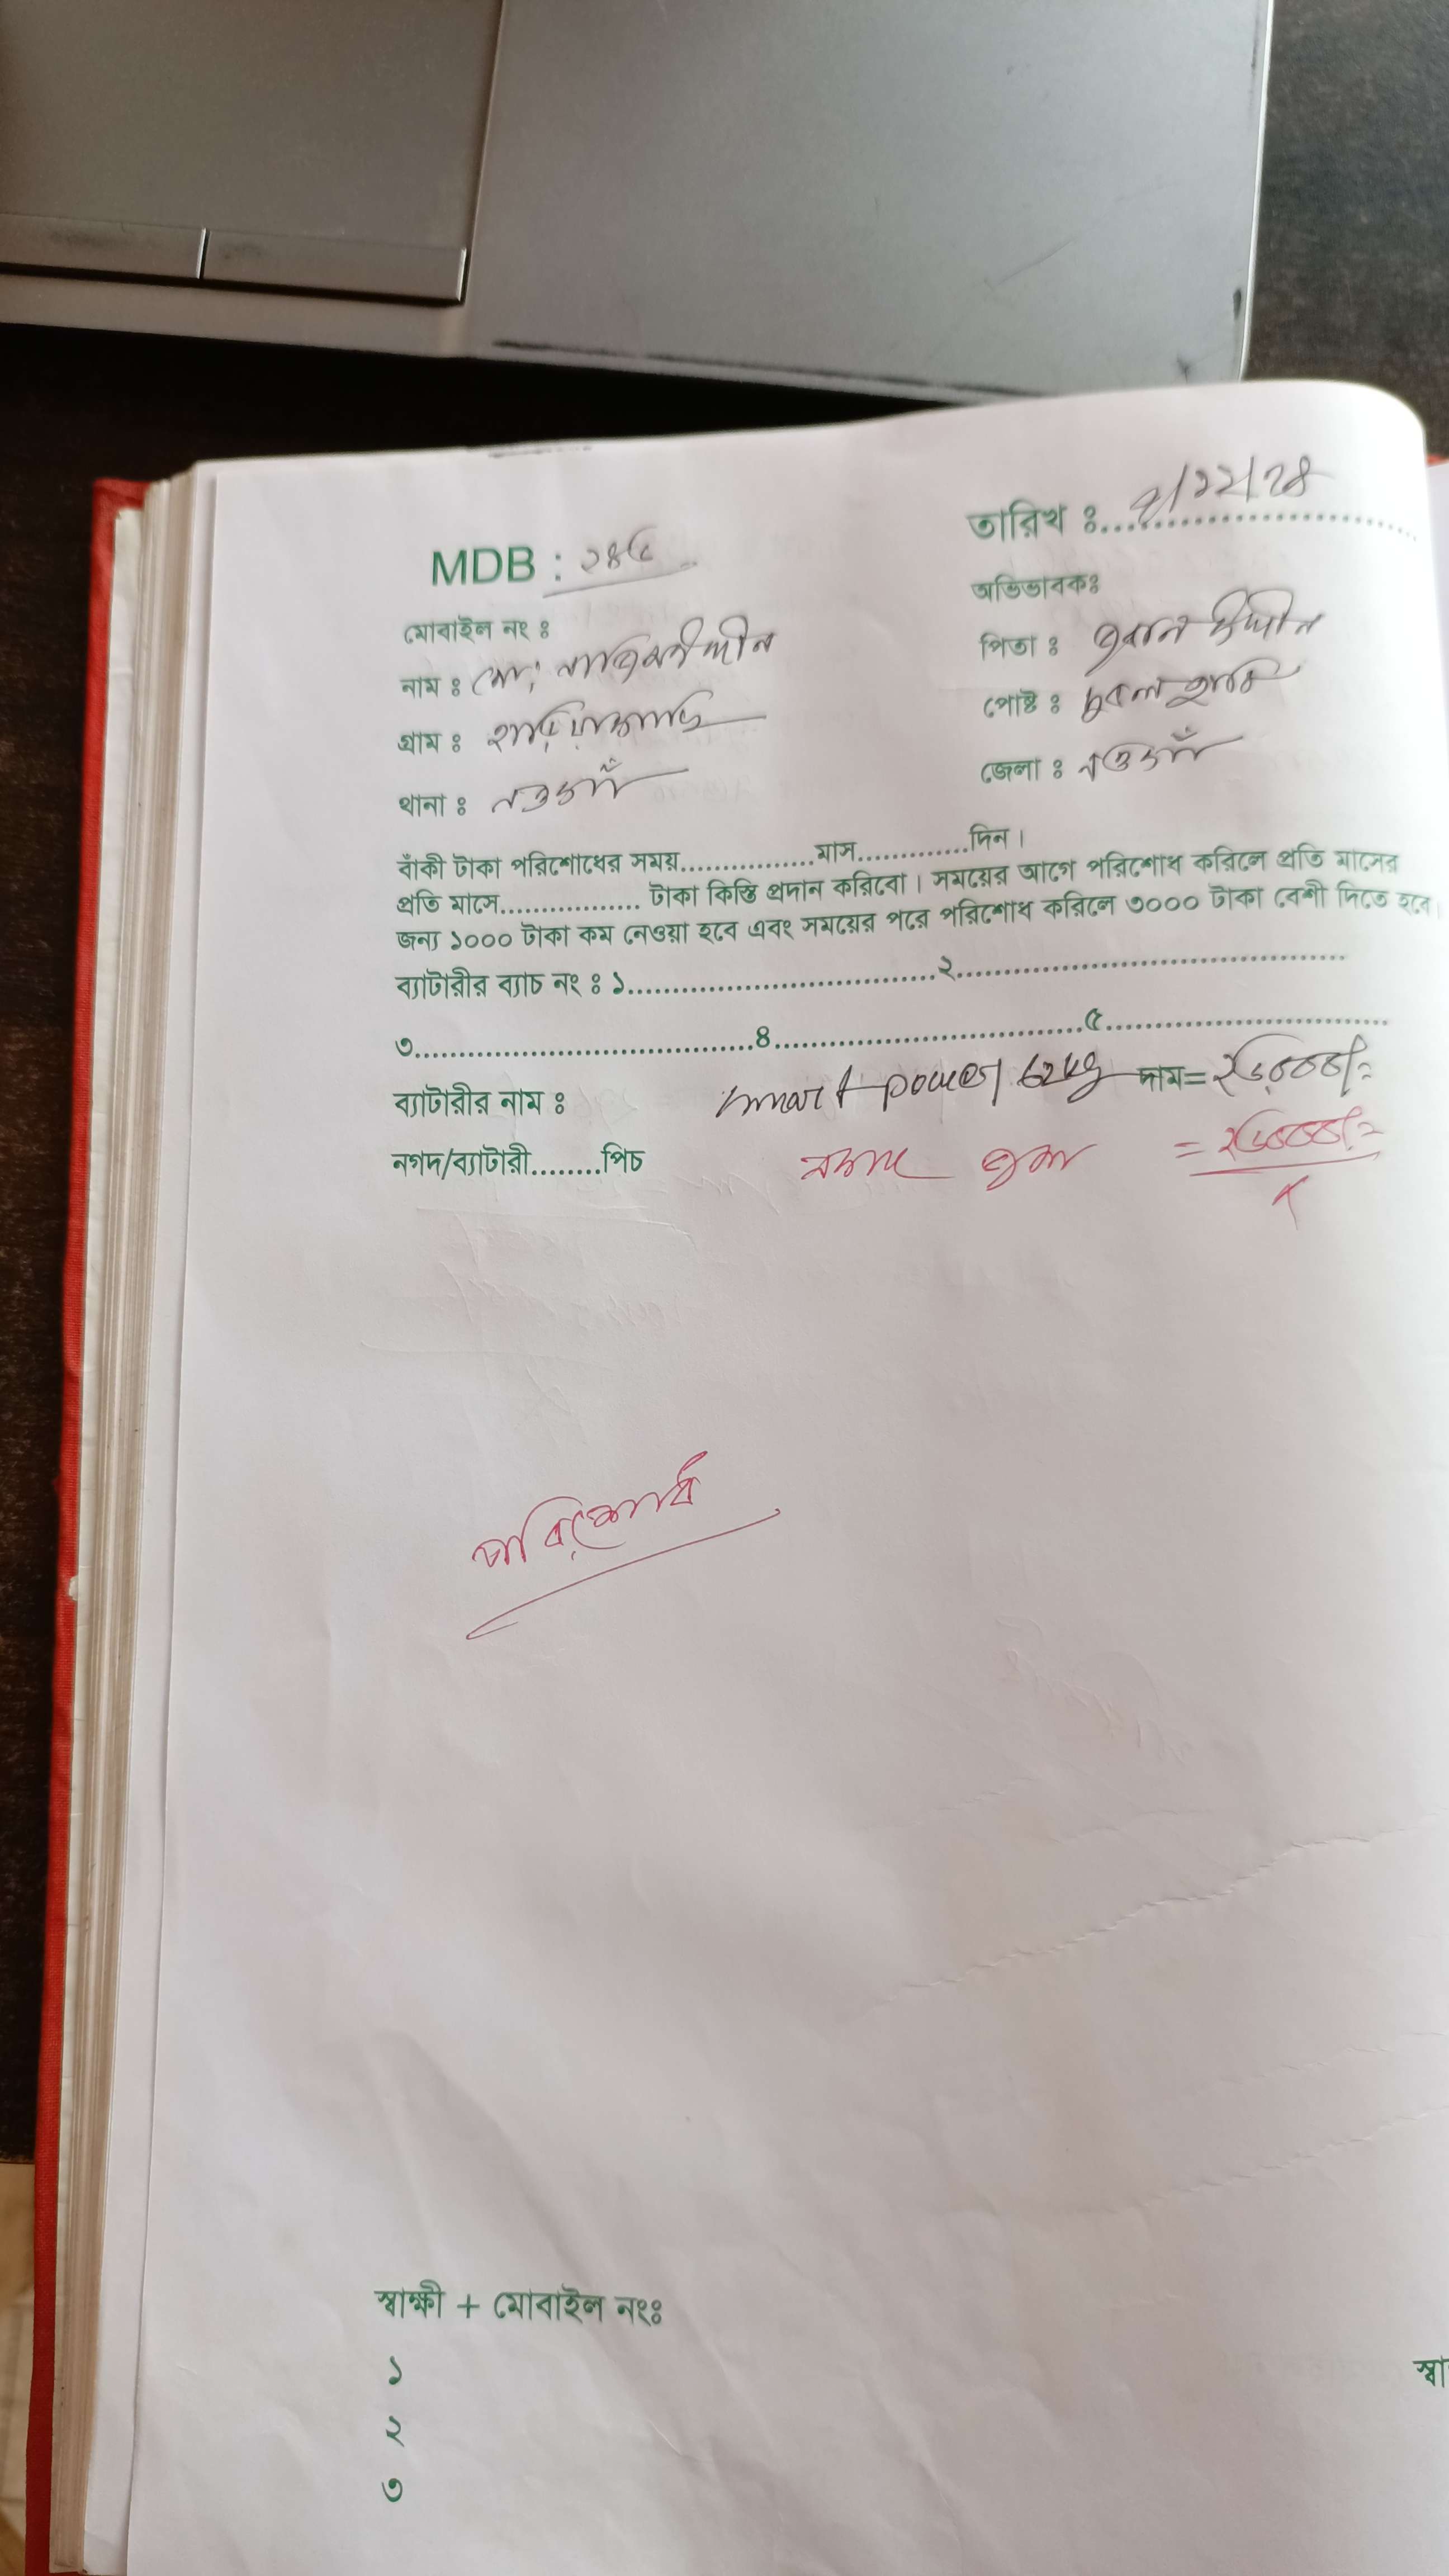 তারিখ ঃ............................
MDB : ২৪৫
অভিভাবকঃ
মোবাইল নং ঃ
পিতা ঃ
নাম ঃ মো: নাজিমউদ্দীন
পোষ্ট ঃ
গ্রাম ঃ
জেলা ঃ নওগাঁ
থানা ঃ নওগাঁ
বাঁকী টাকা পরিশোধের সময়................মাস.............দিন।
প্রতি মাসে................. টাকা কিস্তি প্রদান করিবো। সময়ের আগে পরিশোধ করিলে প্রতি মাসের
জন্য ১০০০ টাকা কম নেওয়া হবে এবং সময়ের পরে পরিশোধ করিলে ৩০০০ টাকা বেশী দিতে হবে।
ব্যাটারীর ব্যাচ নং ঃ ১.....................................২...............................................
৩........................................৪.....................................৫..................................
ব্যাটারীর নাম ঃ smart power 62kg দাম=
নগদ/ব্যাটারী........পিচ নগদ জমা
পরিশোধ
স্বাক্ষী + মোবাইল নংঃ
১
২
৩
স্বা